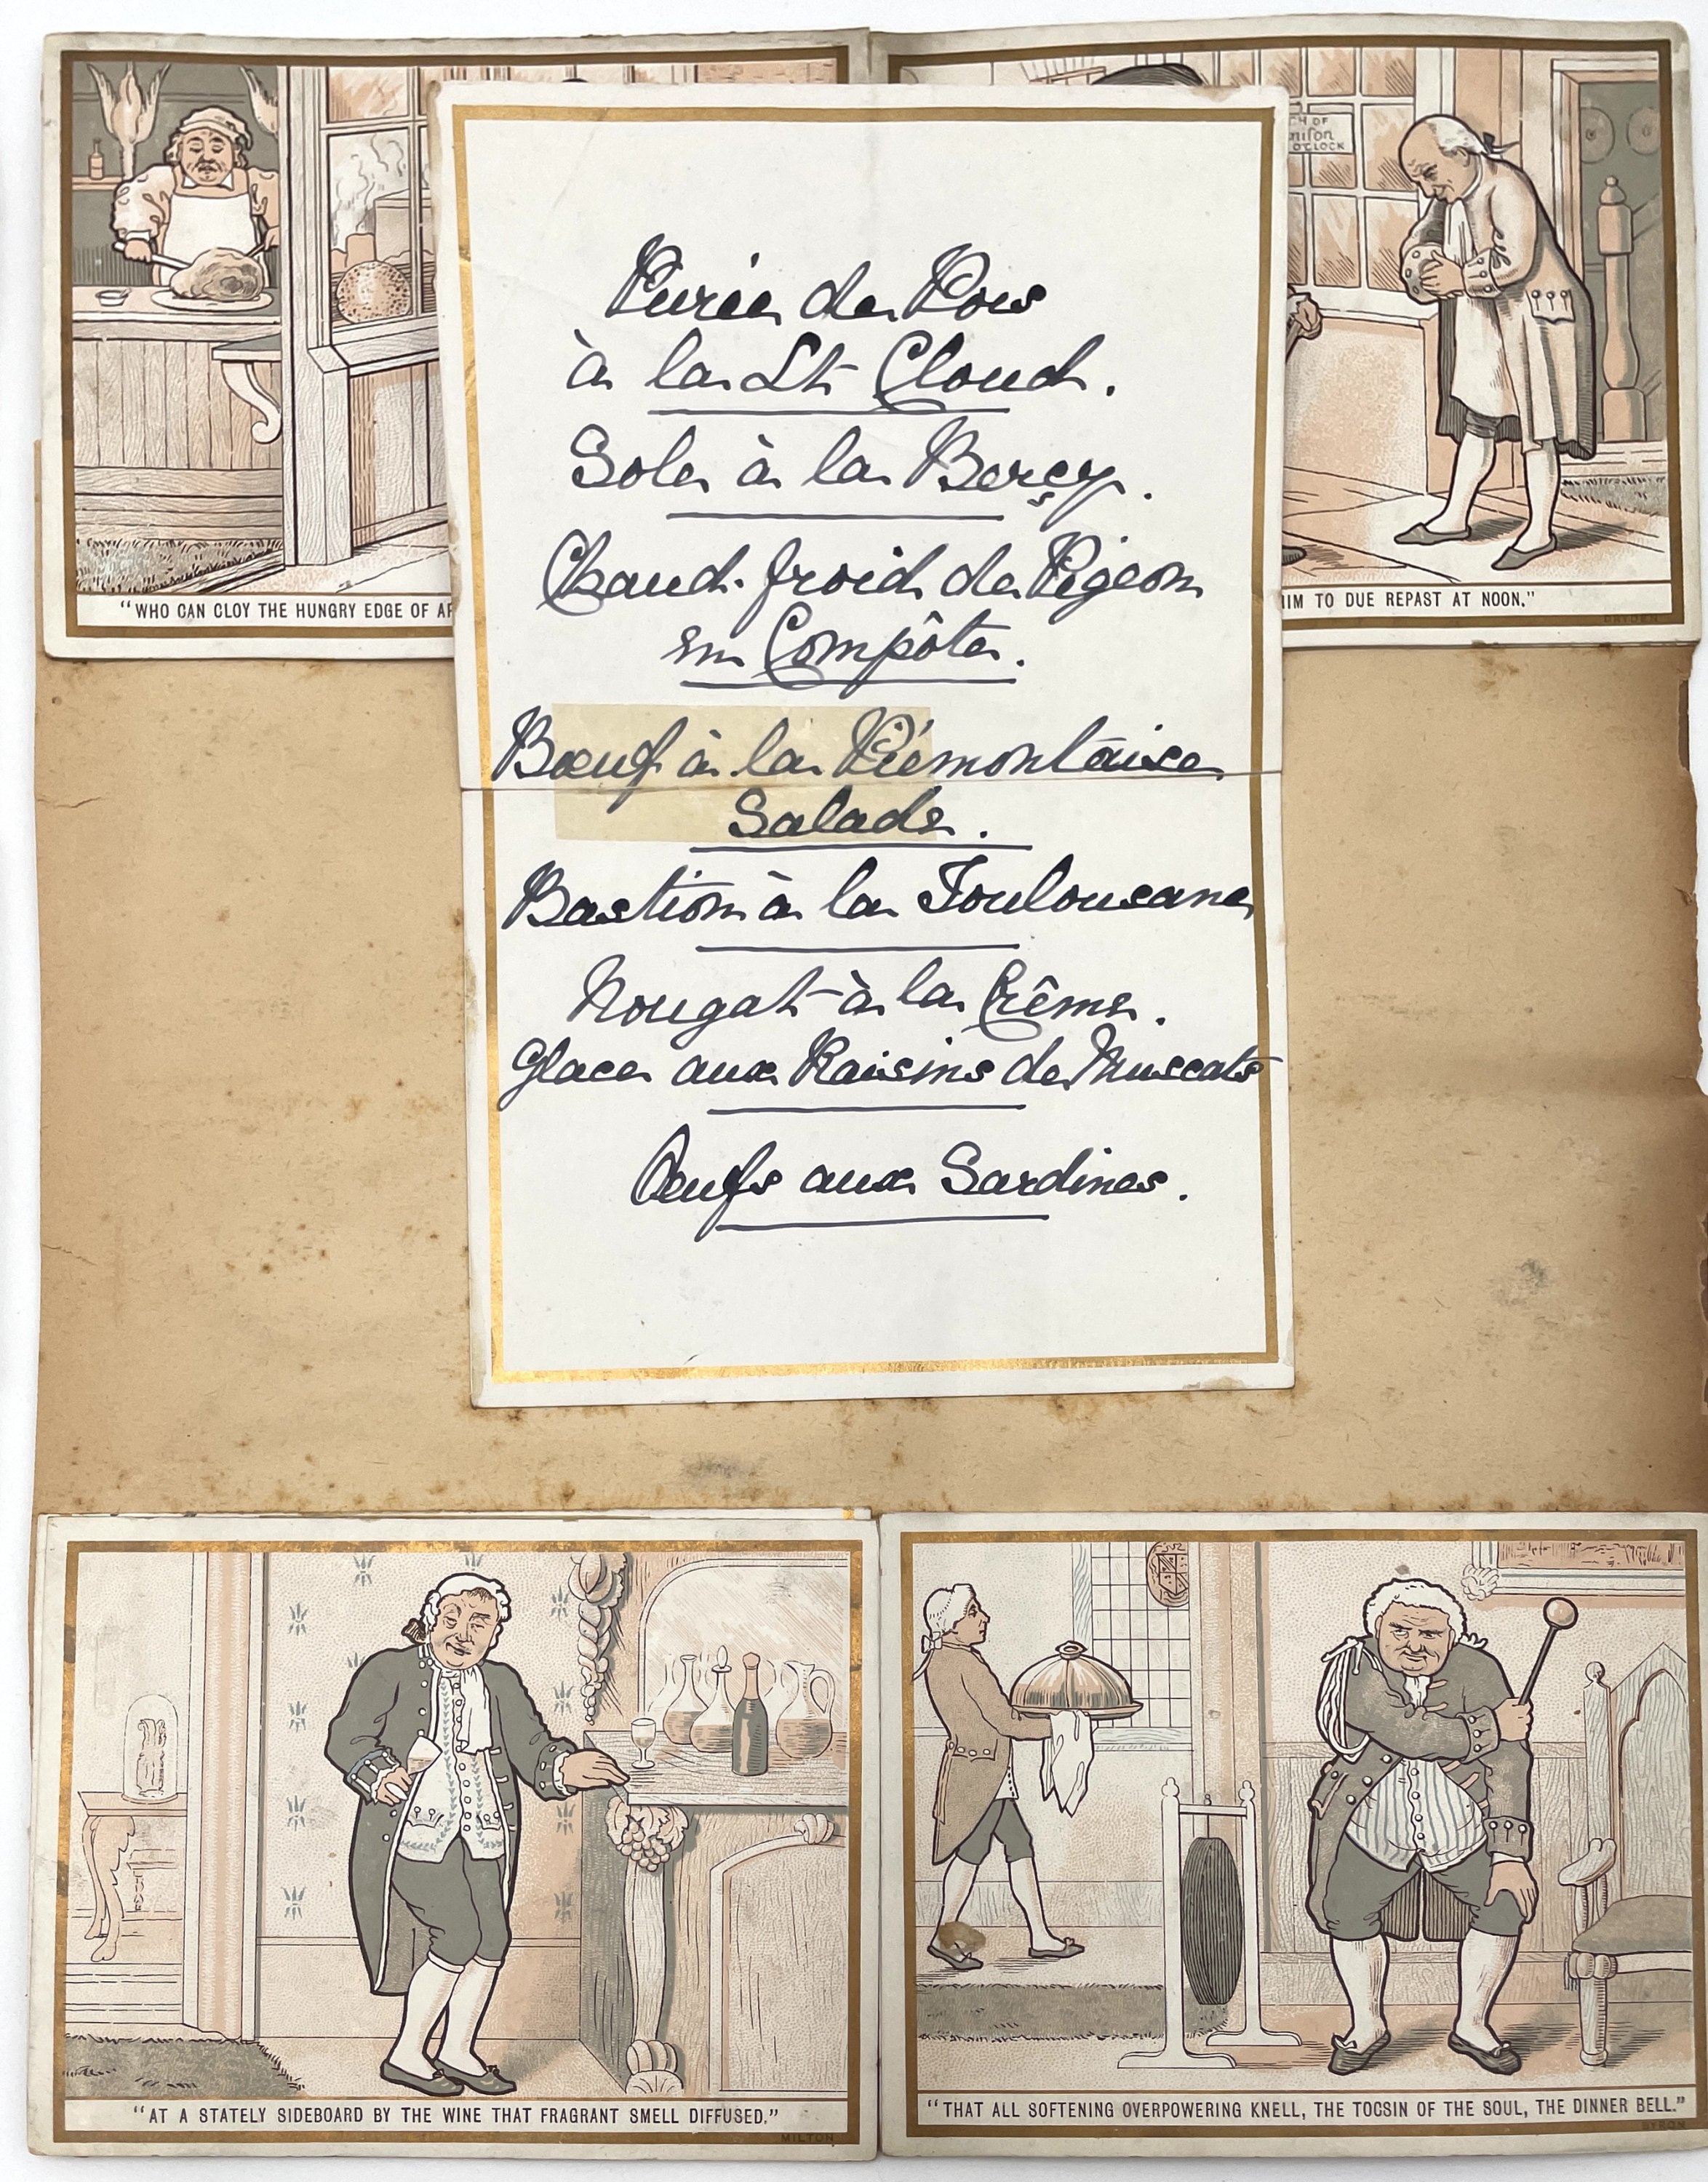 CH OF
nison
O'CLOCK
"WHO CAN CLOY THE HUNGRY EDGE OF AP
HIM TO DUE REPAST AT NOON."
DRYDEN
Purée de Pois
à la St Cloud.
Sole à la Bercy.
Chaud-froid de Pigeon
en Compôte.
Bœuf à la Piémontaise
Salade.
Bastion à la Toulousane
Nougat à la Crême.
Glace aux Raisins de Muscats
Œufs aux Sardines.
"AT A STATELY SIDEBOARD BY THE WINE THAT FRAGRANT SMELL DIFFUSED."
MILTON
"THAT ALL SOFTENING OVERPOWERING KNELL, THE TOCSIN OF THE SOUL, THE DINNER BELL."
BYRON